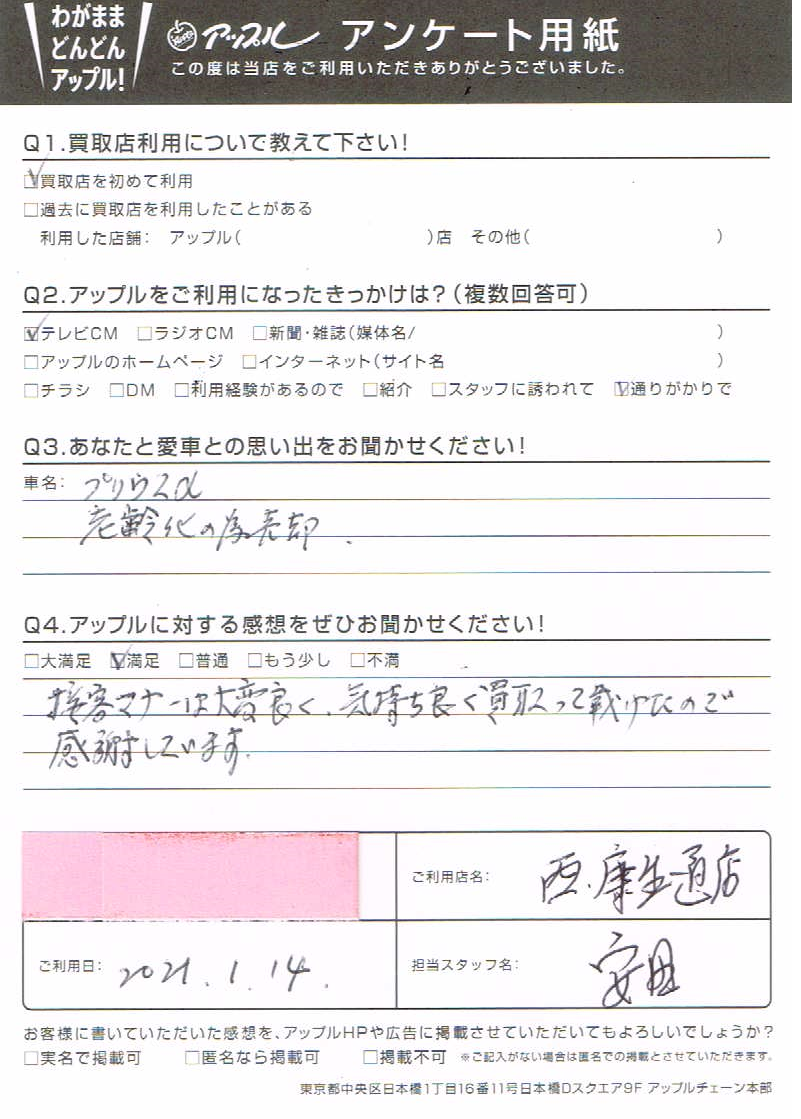 わがまま
どんどん
アップル!
Apple アップル アンケート用紙
この度は当店をご利用いただきありがとうございました。
Q1.買取店利用について教えて下さい!
☑買取店を初めて利用
□過去に買取店を利用したことがある
利用した店舗: アップル( )店 その他( )
Q2.アップルをご利用になったきっかけは?(複数回答可)
☑テレビCM □ラジオCM □新聞・雑誌(媒体名/ )
□アップルのホームページ □インターネット(サイト名 )
□チラシ □DM □利用経験があるので □紹介 □スタッフに誘われて ☑通りがかりで
Q3.あなたと愛車との思い出をお聞かせください!
車名: プリウスα
老齢化の為売却.
Q4.アップルに対する感想をぜひお聞かせください!
□大満足 ☑満足 □普通 □もう少し □不満
接客マナーは大変良く、気持ち良く買取って載けたので
感謝しています.
ご利用店名: 西.康生通店
ご利用日: 2021.1.14.
担当スタッフ名: 安田
お客様に書いていただいた感想を、アップルHPや広告に掲載させていただいてもよろしいでしょうか?
□実名で掲載可 □匿名なら掲載可 □掲載不可 ※ご記入がない場合は匿名での掲載とさせていただきます。
東京都中央区日本橋1丁目16番11号日本橋Dスクエア9F アップルチェーン本部